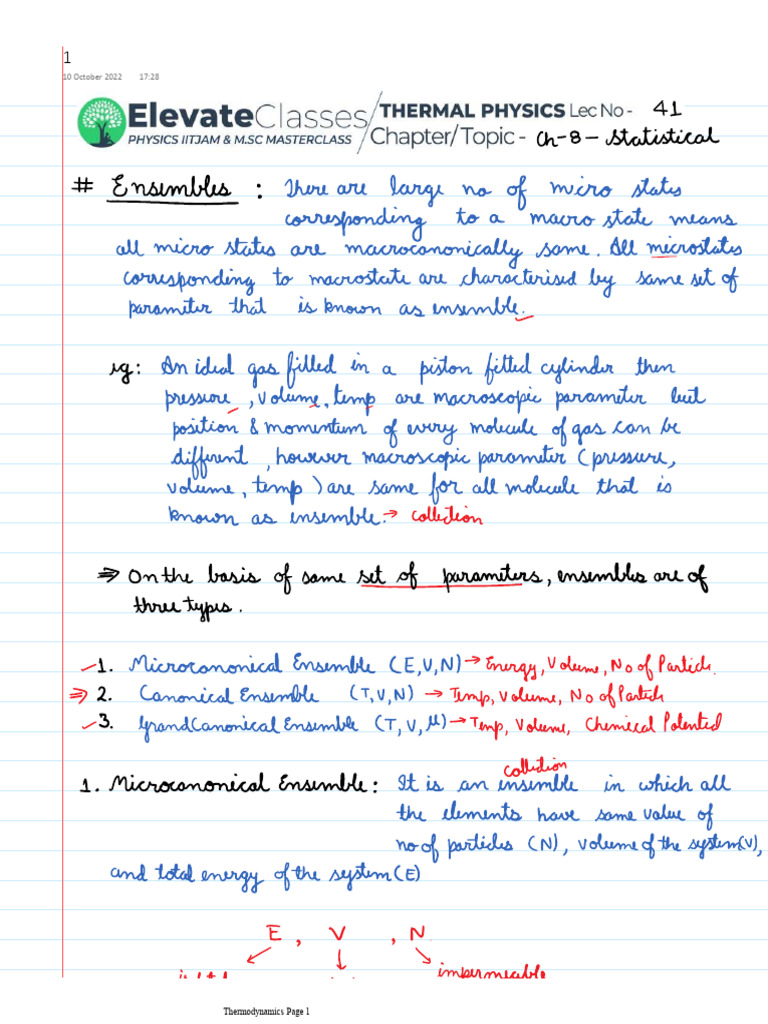 1
10 October 2022 17:28
ElevateClasses THERMAL PHYSICS Lec No - 41
PHYSICS IITJAM & M.SC MASTERCLASS Chapter/Topic - Ch-8 - Statistical
# Ensembles : There are large no of micro states
corresponding to a macro state means
all micro states are macrocanonically same. All microstates
corresponding to macrostate are characterised by same set of
parameter that is known as ensemble.
eg: An ideal gas filled in a piston fitted cylinder then
pressure, volume, temp are macroscopic parameter but
position & momentum of every molecule of gas can be
different, however macroscopic parameter (pressure,
volume, temp) are same for all molecule that is
known as ensemble. → collection
⇒ On the basis of same set of parameters, ensembles are of
three types.
1. Microcanonical Ensemble (E,V,N) → Energy, Volume, No of Particls.
⇒ 2. Canonical Ensemble (T,V,N) → Temp, Volume, No of Particls
3. GrandCanonical Ensemble (T,V,μ) → Temp, Volume, Chemical Potential
collection
1. Microcanonical Ensemble: It is an ensemble in which all
the elements have same value of
no of particles (N), volume of the system (V),
and total energy of the system (E)
E, V, N
impermeable
Thermodynamics Page 1